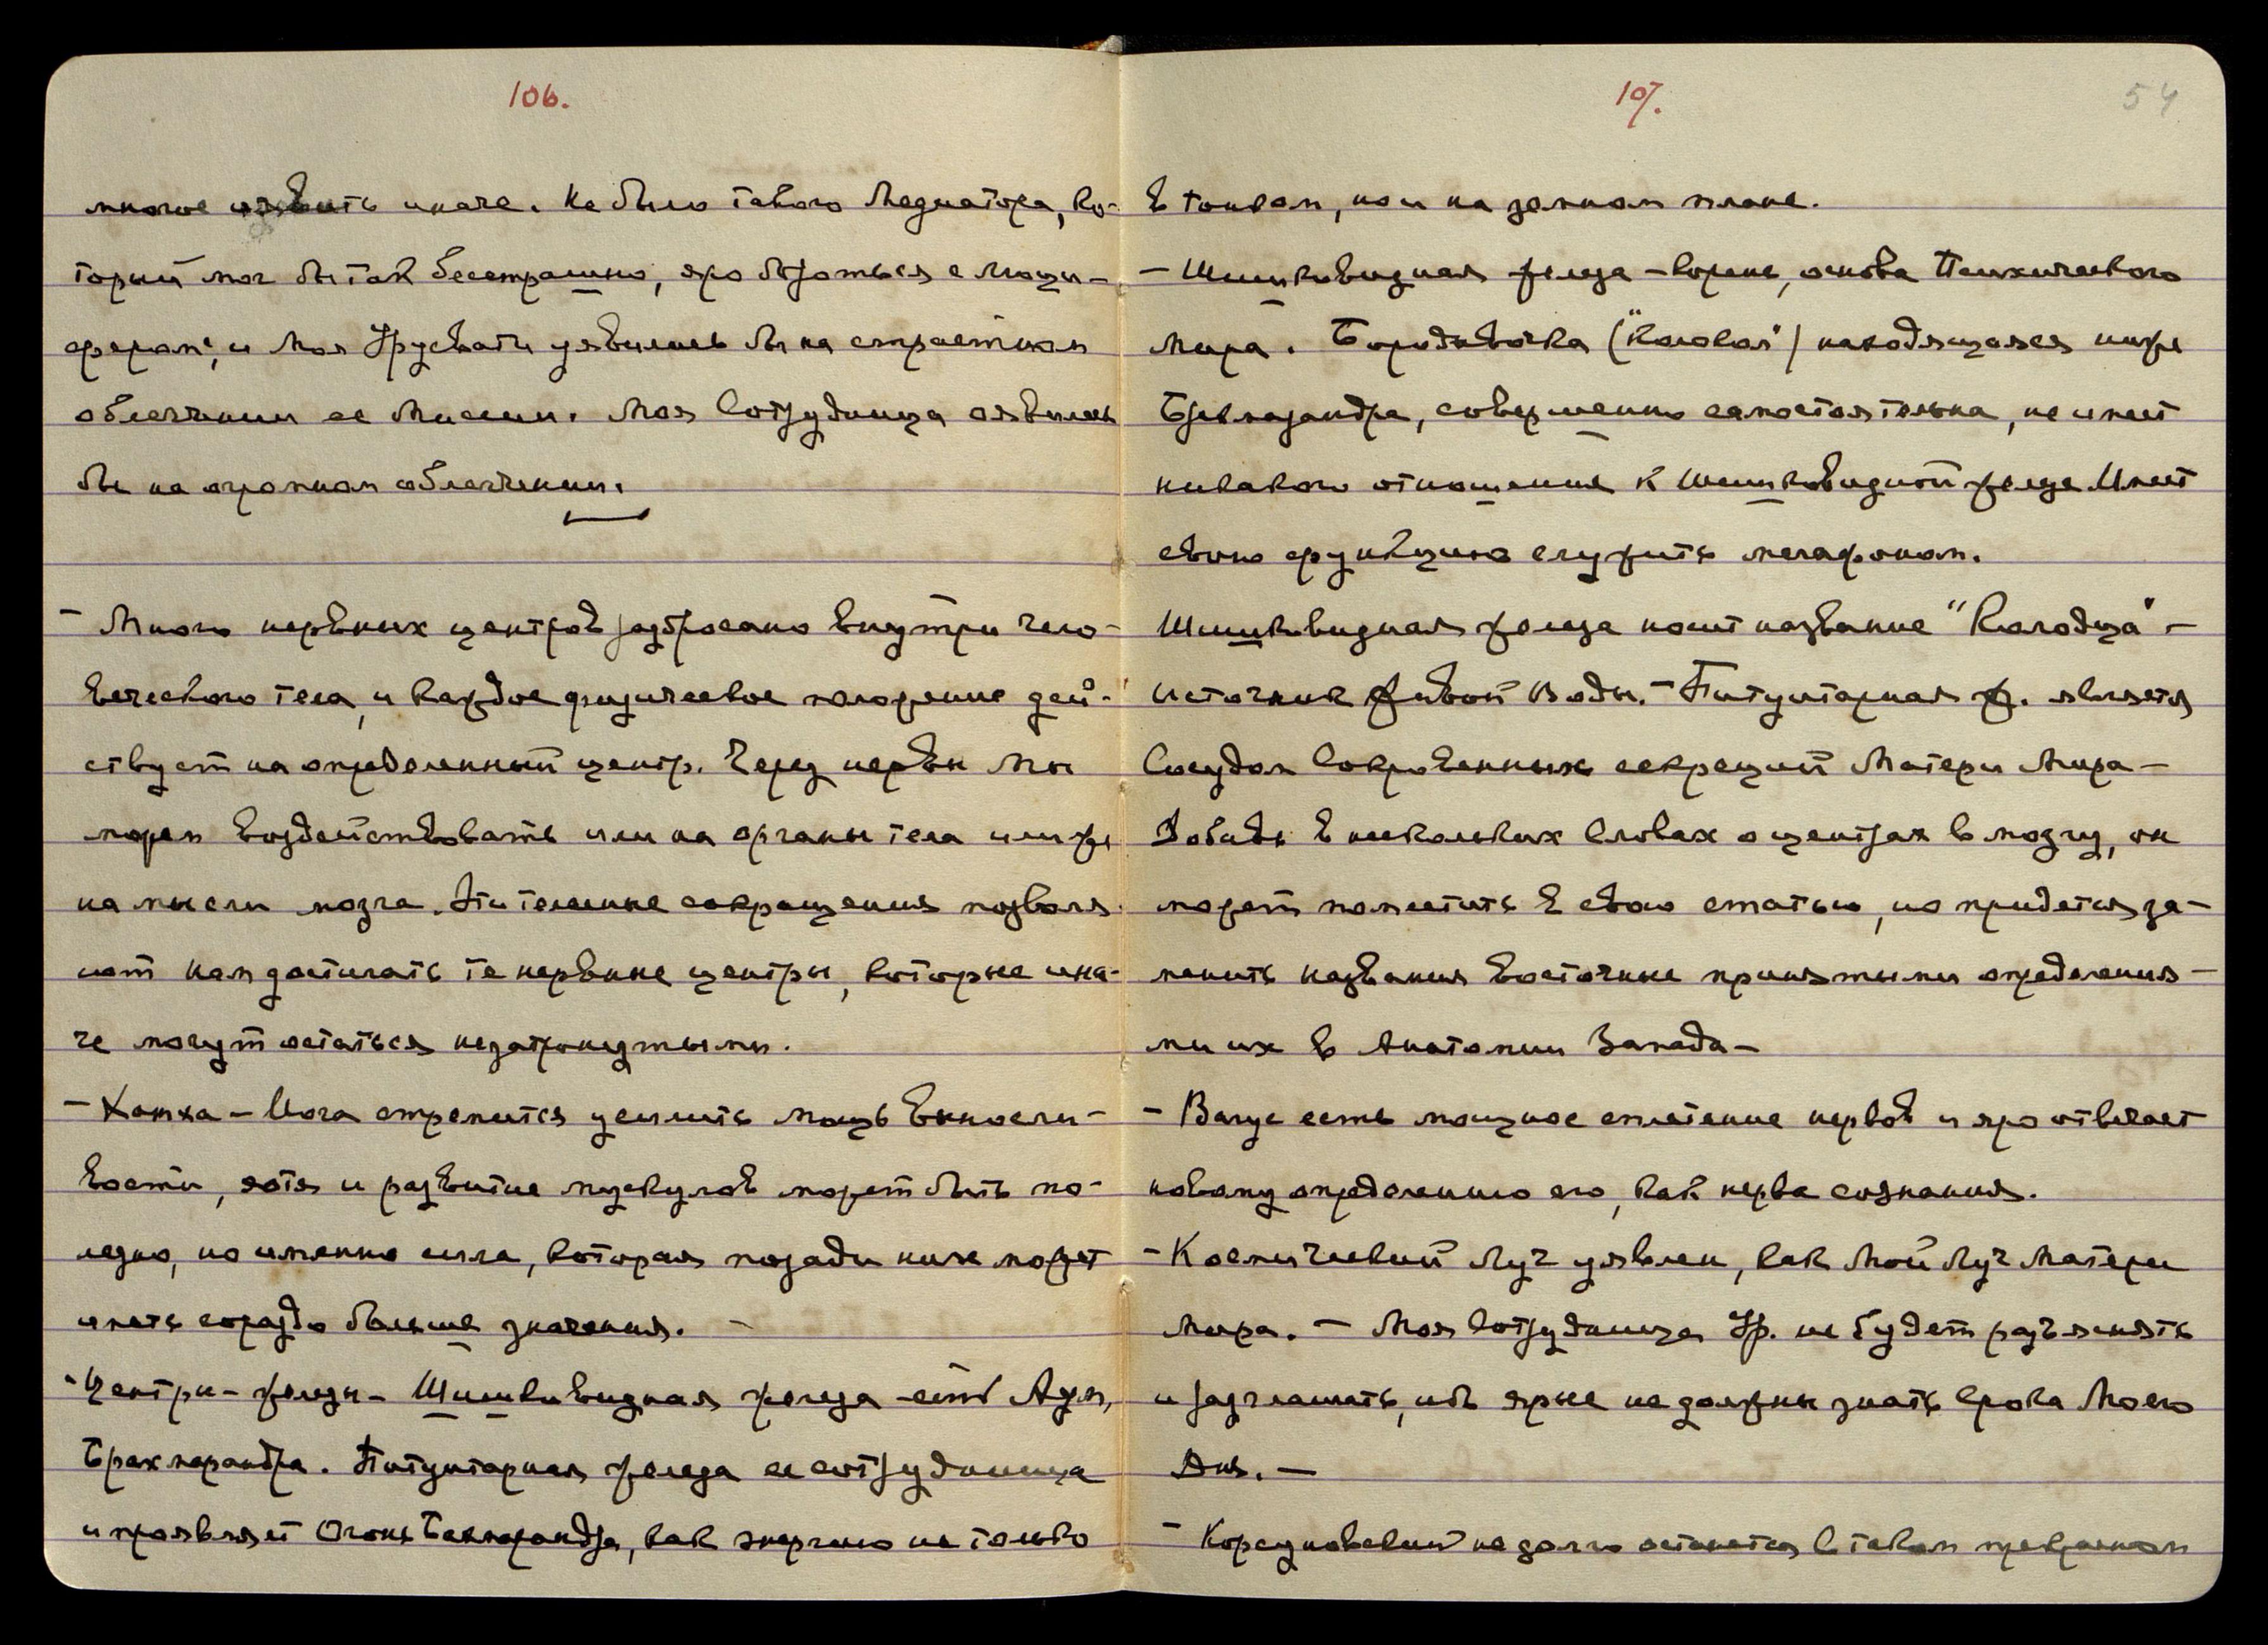 106.
многое изъять иначе. Не было такого Медиатора, ко-
торый мог бы так бесстрашно, яро бороться с Люци-
фером, и Моя Урусвати уявилась бы на страстном
облегчении ее Миссии. Моя Сотрудница оявилась
бы на огромном облегчении.
– Много нервных центров разбросано внутри чело-
веческого тела, и каждое физическое положение дей-
ствует на определенный центр. Через нервы Мы
можем воздействовать или на органы тела или же
на мысли мозга. Эти телесные сокращения позволя-
ют нам достигать те нервные центры, которые ина-
че могут остаться незатронутыми.
– Хатха – Йога стремится усилить мощь выносли-
вости, хотя и развитие мускулов может быть по-
лезно, но именно сила, которая позади них может
иметь гораздо больше значения. –
– Центры – железы – Шишковидная железа – есть
Брахмарандра. Питуитарная железа ее сотрудница
и проявляет Огонь Брахмарандра, как энергию не только
107.
54
в тонком, но и на земном плане.
– Шишковидная железа – корень, основа Психического
Мира. Бородавочка ("Колокол") находящаяся ниже
Брахмарандра, совершенно самостоятельна, не имеет
никакого отношения к Шишковидной железе. Имеет
свою функцию служить мегафоном.
Шишковидная железа носит название "Колодца" –
источник Живой Воды. – Питуитарная ж. является
Сосудом Сокровенных секреций Матери Мира –
в нескольких словах о центрах в мозгу, он
может поместить в свою статью, но придется за-
менить названия восточные принятыми определения-
ми их в Анатомии Запада –
– Вагус есть мощное сплетение нервов и яро отвечает
новому определению его, как нерва сознания.
– Космический Луч уявлен, как Мой Луч Матери
Мира. – Моя Сотрудница Ур. не будет разъяснять
и разглашать, ибо ярые не должны знать Срока Моего
Дня. –
– не долго останется в таком